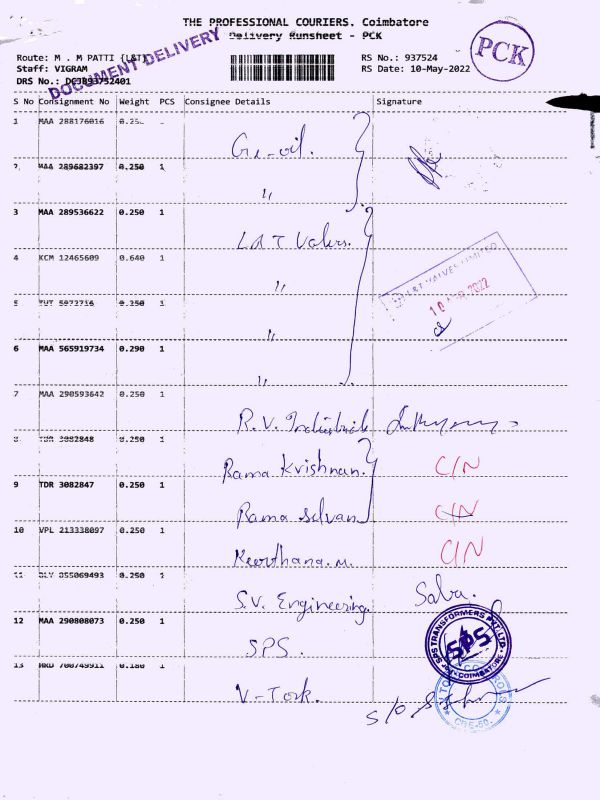 THE PROFESSIONAL COURIERS. Coimbatore
Delivery Runsheet - PCK
Route: M . M PATTI {L&T}
Staff: VIGRAM
DRS No.: DCJ893752401
DOCUMENT DELIVERY
RS No.: 937524
RS Date: 10-May-2022
PCK
S No Consignment No Weight PCS Consignee Details Signature
1 MAA 288176016
2 MAA 289682397 0.250 1
"
3 MAA 289536622 0.250 1
L&T
4 KCM 12465609 0.640 1
"
L&T VALVES LIMITED
2022
5 0.250 1
"
6 MAA 565919734 0.290 1
"
7 MAA 290593642 0.250 1
R.V. Industrial
8 TDR 3082848 0.250 1
Rama Krishnan. C/N
9 TDR 3082847 0.250 1
Rama Selvan C/N
10 VPL 213338097 0.250 1
Keerthana.M. C/N
11 855069493 0.250 1
S.V. Engineering. Saba.
12 MAA 290808073 0.250 1
SPS.
SPS TRANSFORMERS PVT. LTD.
SPS
COIMBATORE
13 700749911 0.180 1
V-Tork.
CBE-50.